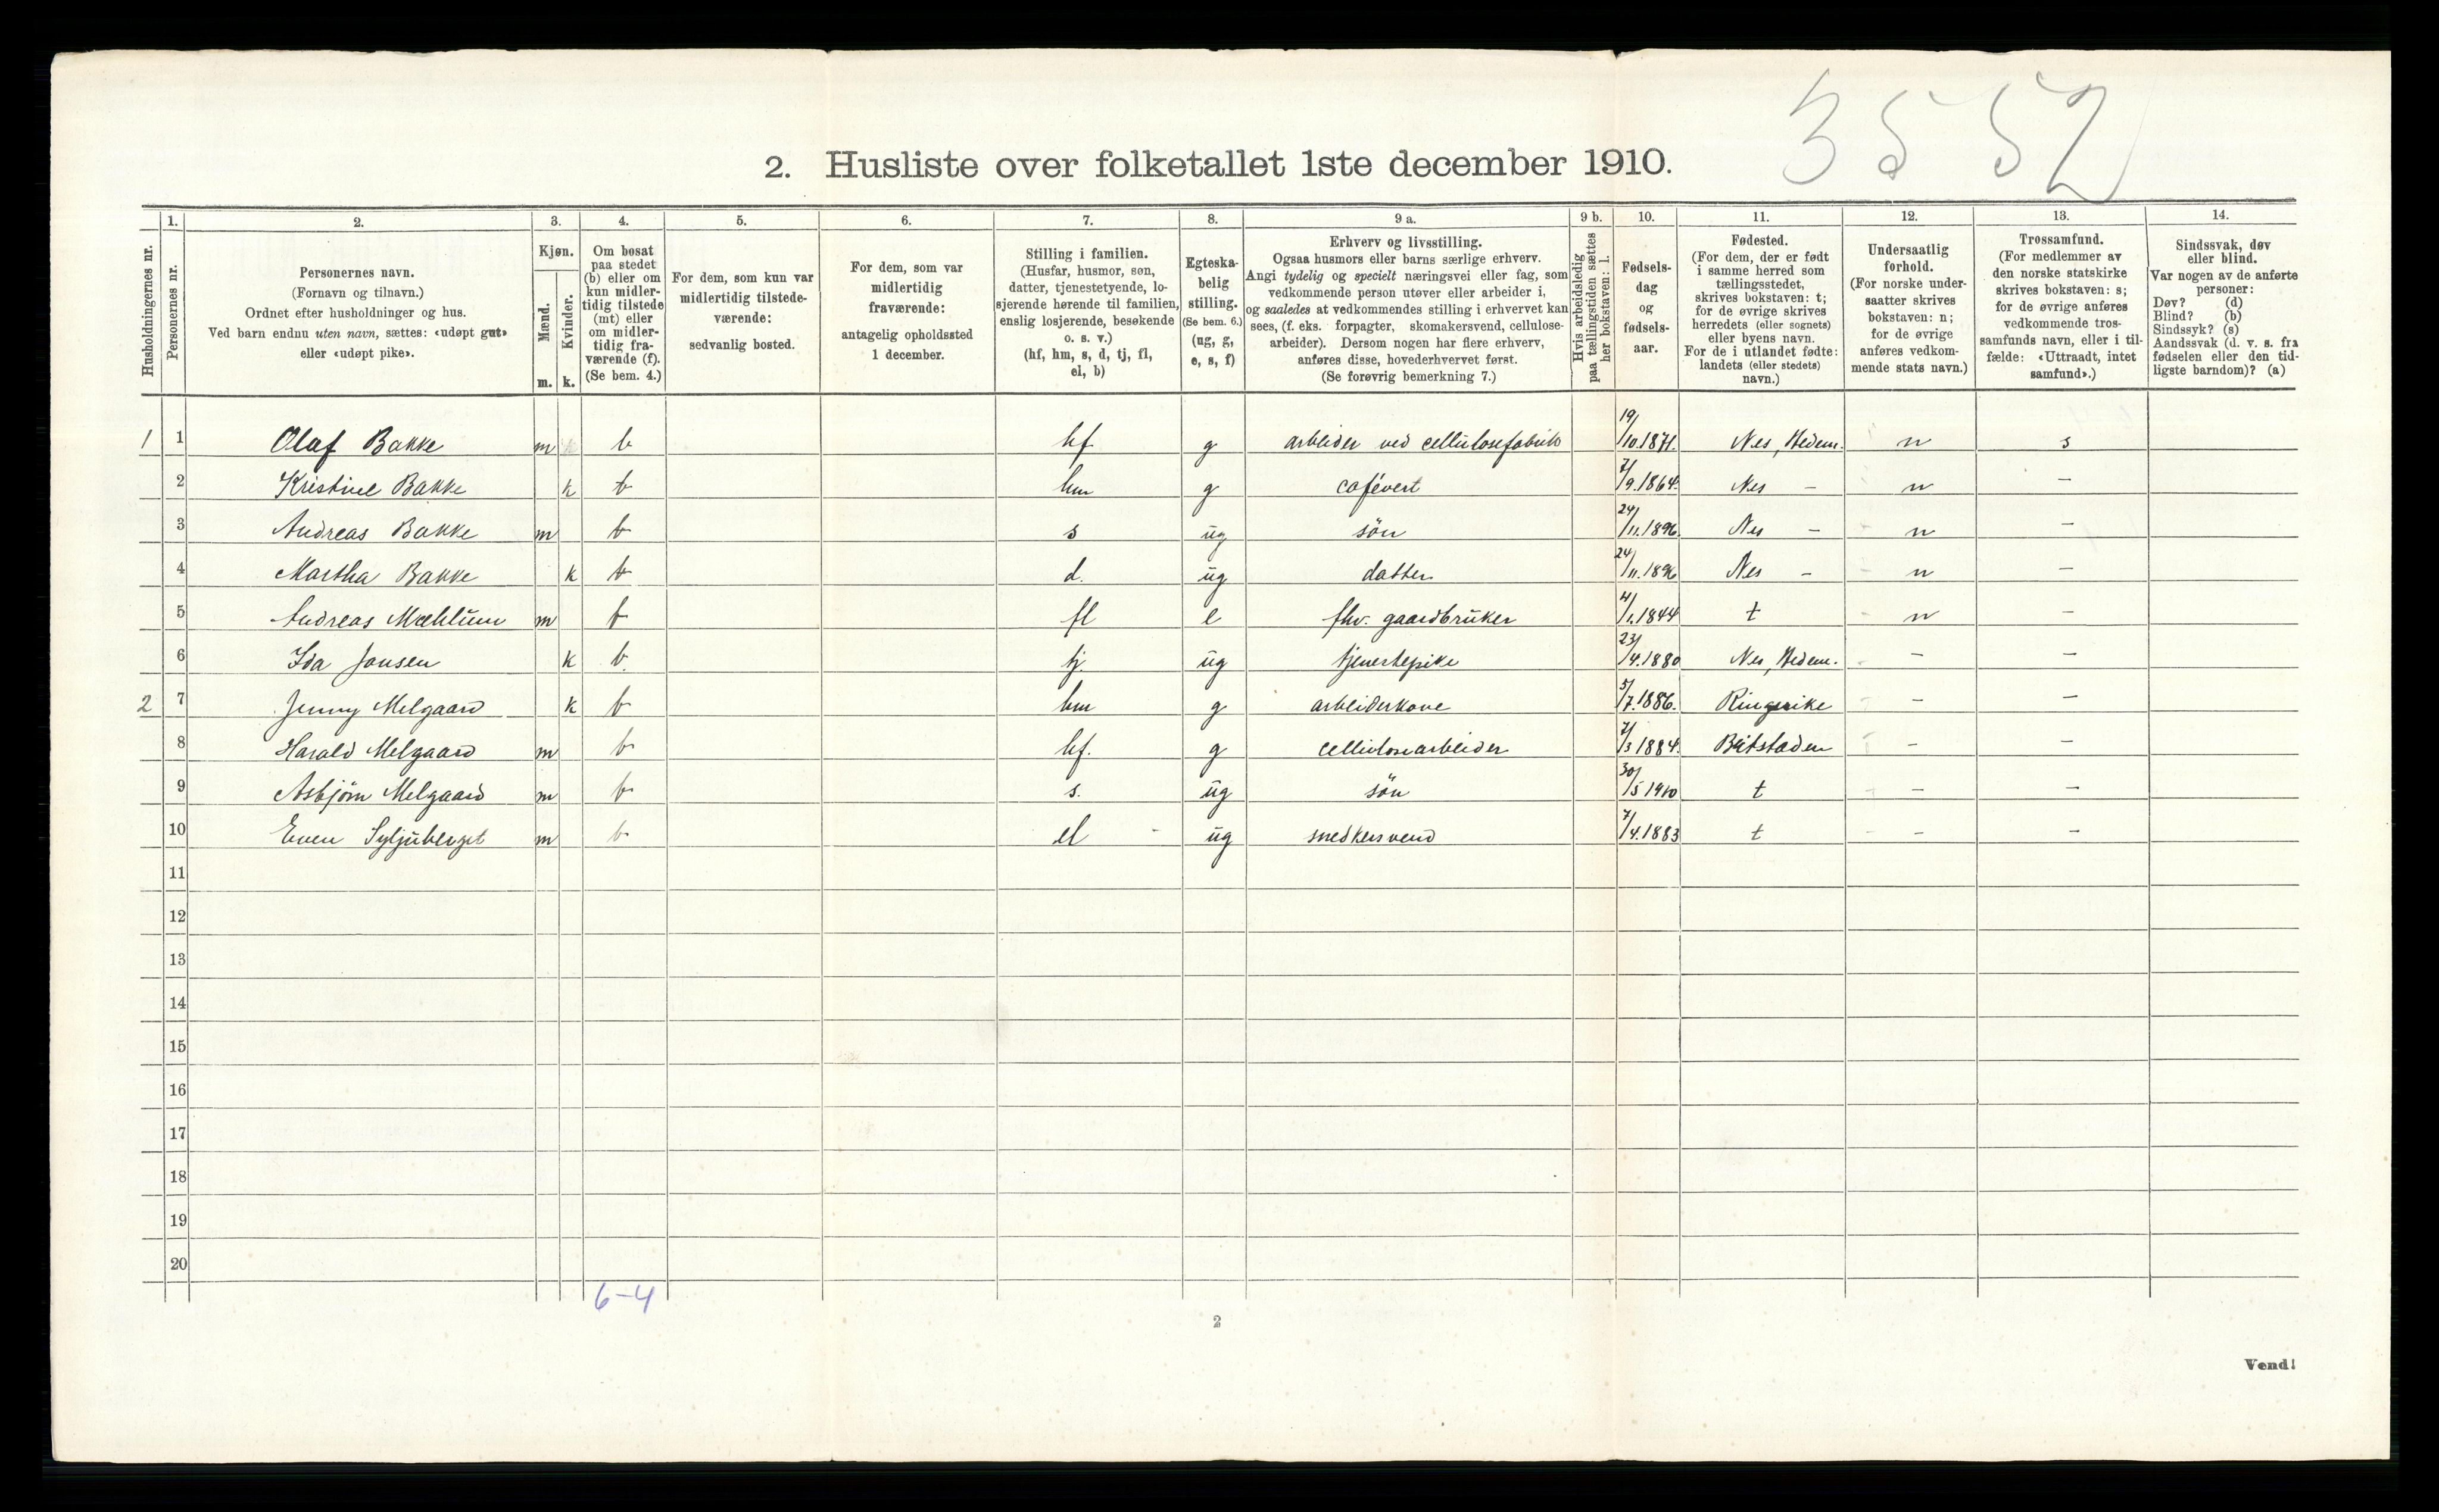 3552
2. Husliste over folketallet 1ste december 1910.
Husholdningernes nr.
1.
Personernes nr.
2.
Personernes navn.
(Fornavn og tilnavn.)
Ordnet efter husholdninger og hus.
Ved barn endnu uten navn, sættes: «udøpt gut»
eller «udøpt pike».
3.
Kjøn.
Mænd.
m.
Kvinder.
k.
4.
Om bosat
paa stedet
(b) eller om
kun midler-
tidig tilstede
(mt) eller
om midler-
tidig fra-
værende (f).
(Se bem. 4.)
5.
For dem, som kun var
midlertidig tilstede-
værende:
sedvanlig bosted.
6.
For dem, som var
midlertidig
fraværende:
antagelig opholdssted
1 december.
7.
Stilling i familien.
(Husfar, husmor, søn,
datter, tjenestetyende, lo-
sjerende hørende til familien,
enslig losjerende, besøkende
o. s. v.)
(hf, hm, s, d, tj, fl,
el, b)
8.
Egteska-
belig
stilling.
(Se bem. 6.)
(ug, g,
e, s, f)
9 a.
Erhverv og livsstilling.
Ogsaa husmors eller barns særlige erhverv.
Angi tydelig og specielt næringsvei eller fag, som
vedkommende person utøver eller arbeider i,
og saaledes at vedkommendes stilling i erhvervet kan
sees, (f. eks. forpagter, skomakersvend, cellulose-
arbeider). Dersom nogen har flere erhverv,
anføres disse, hovederhvervet først.
(Se forøvrig bemerkning 7.)
9 b.
Hvis arbeidsledig
paa tællingstiden sættes
her bokstaven: l.
10.
Fødsels-
dag
og
fødsels-
aar.
11.
Fødested.
(For dem, der er født
i samme herred som
tællingsstedet,
skrives bokstaven: t;
for de øvrige skrives
herredets (eller sognets)
eller byens navn.
For de i utlandet fødte:
landets (eller stedets)
navn.)
12.
Undersaatlig
forhold.
(For norske under-
saatter skrives
bokstaven: n;
for de øvrige
anføres vedkom-
mende stats navn.)
13.
Trossamfund.
(For medlemmer av
den norske statskirke
skrives bokstaven: s;
for de øvrige anføres
vedkommende tros-
samfunds navn, eller i til-
fælde: «Uttraadt, intet
samfund».)
14.
Sindssvak, døv
eller blind.
Var nogen av de anførte
personer:
Døv? (d)
Blind? (b)
Sindssyk? (s)
Aandssvak (d. v. s. fra
fødselen eller den tid-
ligste barndom)? (a)
1 1 Olaf Bakke m b hf g arbeider ved cellulosefabrik 19/10.1871. Nes, Hedem. n s
2 Kristine Bakke k b hm g cafévert 7/9.1864. Nes – n –
3 Andreas Bakke m b s ug søn 24/11.1896. Nes – n –
4 Martha Bakke k b d. ug datter 24/11.1896 Nes – n –
5 Andreas Mæhlum m b fl e fhv. gaardbruker 4/1.1844 t n –
6 Ida Jonsen k b tj. ug tjenestepike 23/4.1880 Nes, Hedem. – –
2 7 Jenny Melgaard k b hm g arbeiderkone 5/7.1886. Ringerike – –
8 Harald Melgaard m b hf. g cellulosearbeider 7/3 1884. Beitstaden – –
9 Asbjörn Melgaard m b s. ug søn 30/5 1910 t – –
10 Even Syljuberget m b el – ug snedkersvend 7/4.1883 t – –
11
12
13
14
15
16
17
18
19
20
6–4
2
Vend!